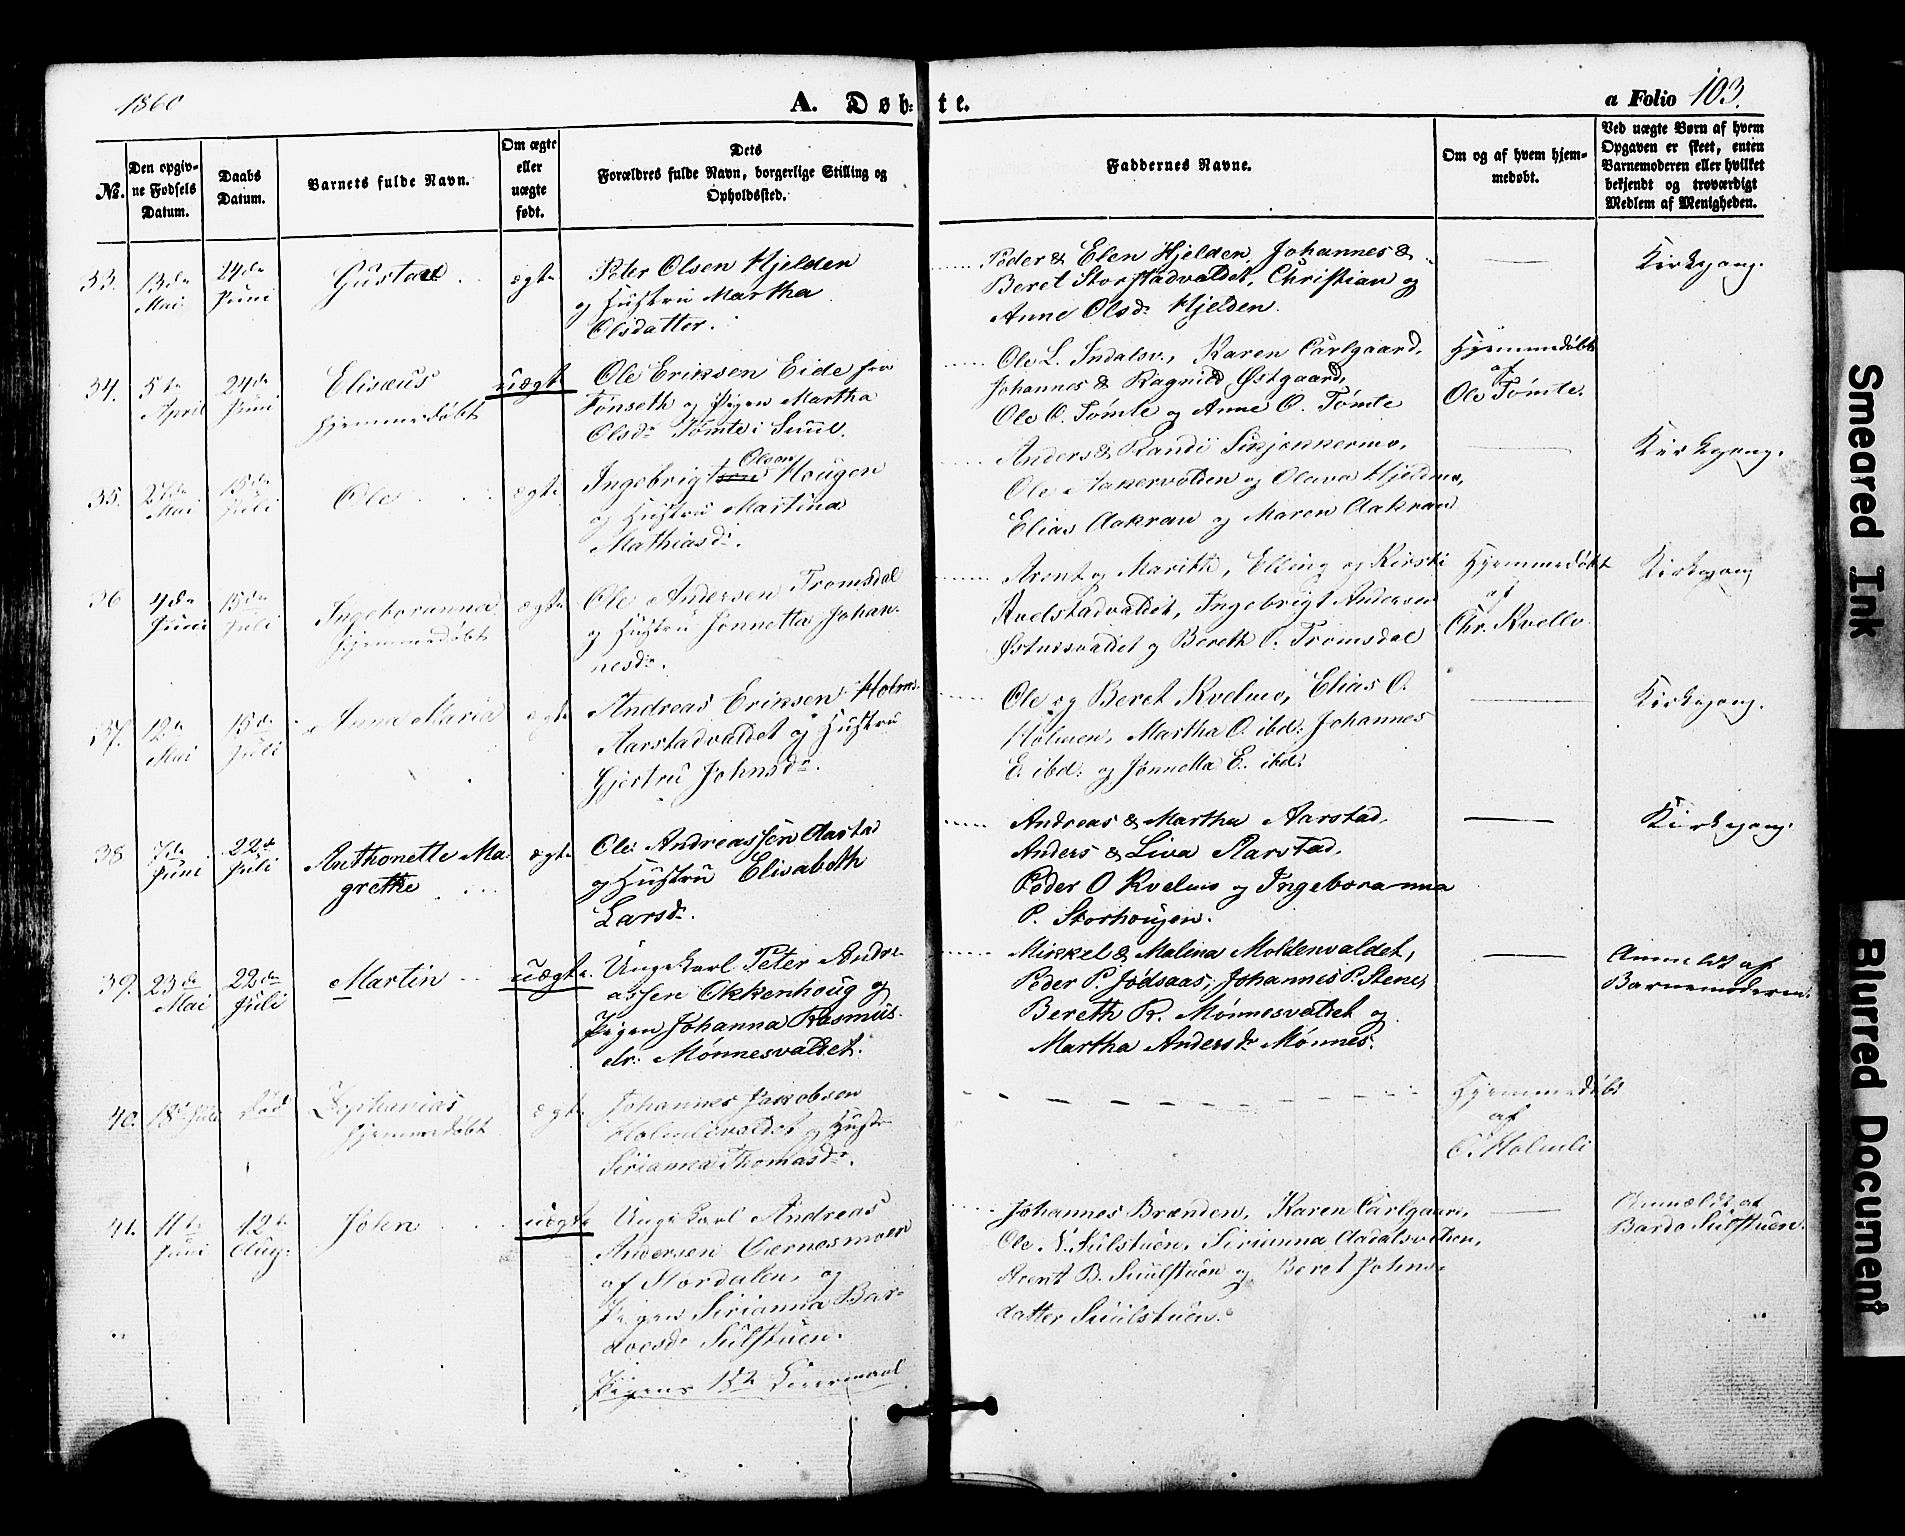 1860
A. Døb-te.
a Folio 103.
No.
Den opgiv-
ne Fødsels
Datum.
Daabs
Datum.
Barnets fulde Navn.
Om ægte
eller
uægte
født.
Dets
Forældres fulde Navn, borgerlige Stilling og
Opholdssted.
Faddernes Navne.
Om og af hvem hjem-
medøbt.
Ved uægte Børn af hvem
Opgaven er skeet, enten
Barnemoderen eller hvilket
bekjendt og troværdigt
Medlem af Menigheden.
33.
13de
Mai
24de
Juni
Gustav
ægte
Peter Olsen Hjelden
og Hustru Martha
Olsdatter.
Peder & Elen Hjelden, Johannes &
Beret Storstadvaldet, Christian og
Anne Olsdr Hjelden.
Kirkegang.
34.
5te
April
24de
Juni
Elisæus
hjemmedøbt
uægte
Ole Eriksen Eide fra
Tønseth og Pigen Martha
Olsdr Tømte i Suul.
Ole L. Indalsv., Karen Carlgaard,
Johannes & Ragnild Østgaard,
Ole O. Tømte og Anne O. Tømte
Hjemmedøbt
af
Ole Tømte.
35.
Mai
15de
Juli
Ole
ægte
Ingebrigt Olsen Hougen
og Hustru Martina
Mathiasdr.
Anders & Randi Skjækkermo,
Ole Aakervolden og Olava Hjeldmo,
Elias Aakran og Maren Aakran
Kirkegang.
36
4de
Juni
15de
Juli
Ingeboranna
hjemmedøbt
ægte
Ole Andersen Tromsdal
og Hustru Jonnetta Johan-
nesdr.
Arent og Marith, Elling og Kirsti
Kvelstadvaldet, Ingebrigt Andersen
Østnesvaldet og Bereth O. Tromsdal
Hjemmedøbt
af
Chr. Kvello
Kirkegang
37.
12te
Mai
15de
Juli
Anna Maria
ægte
Andreas Eriksen Holms-
Aarstadvaldet og Hustru
Gjertru Johnsdr.
Ole og Beret Kvelmo, Elias O.
Holmen, Martha O. ibd: Johannes
E. ibd: og Jonnetta E. ibd:
Kirkegang.
38
7de
Juni
22de
Juli
Anthonette Ma-
grethe
ægte
Ole Andreassen Aarstad
og Hustru Elisabeth
Larsdr.
Andreas & Martha Aarstad,
Anders & Liva Aarstad,
Peder O Kvelmo og Ingeboranna
P. Storhougen.
Kirkegang.
39.
23de
Mai
22de
Juli
Martin
uægte.
Ungekarl Peter Andre-
assen Okkenhoug og
Pigen Johanna Rasmus-
dr: Mønnesvaldet.
Mikkel & Malina Moldenvaldet,
Peder P. Jødsaas, Johannes P. Stene,
Bereth R. Mønnesvaldet og
Martha Andersdr Mønnes.
Anmeldt af
Barnemoderen.
40.
18de Juli
død
Zephanias
hjemmedøbt
ægte
Johannes Jakobsen
Holmlivaldet og Hustr
Sirianna Thomasdr.
Hjemmedøbt
af
O. Holmli
41.
11te
Juni
12te
Aug.
John
uægte
Ungekarl Andreas
Andersen Oernesmoen
af Stordalen, og
Pigen Sirianna Bar-
doesdr Sulstuen.
Pigens 1ste Leiermaal
Johannes Brænden, Karen Carlgaard,
Ole N. Sulstuen, Sirianna Aadalsvolden,
Arent B. Suulstuen og Beret Johns-
datter Suulstuen.
Anmeldt af
Bardo Sulstuen.
Smeared Ink
Blurred Document